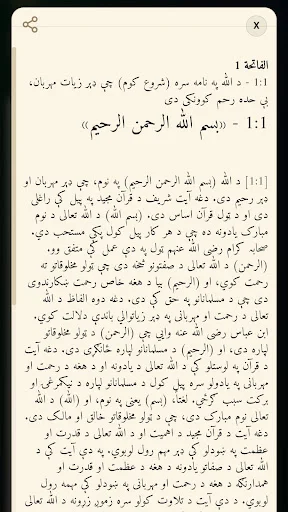 X
الفاتحة 1
1:1 - د الله په نامه سره (شروع کوم) چې ډېر زیات مهربان،
بې حده رحم کوونکی دی
1:1 - ﴿بسم الله الرحمن الرحيم﴾
[1:1] د الله (بسم الله الرحمن الرحیم) په نوم، چې ډېر مهربان او
ډېر رحیم دی. دغه آیت شریف د قرآن مجید په پیل کې راغلی
دی او د ټول قرآن اساس دی. (بسم الله) د الله تعالی د نوم
مبارک یادونه ده چې د هر کار پیل کول پکې مستحب دي.
صحابه کرام رضی الله عنهم ټول په دې عمل کې متفق وو.
(الرحمن) د الله تعالی د صفتونو څخه دی چې په ټولو مخلوقاتو ته
رحمت کوي، او (الرحیم) بیا د هغه خاص رحمت ښکارندوی
دی چې د مسلمانانو په حق کې دی. دغه دوه الفاظ د الله
تعالی د رحمت او مهربانۍ په ډېر زیاتوالي باندې دلالت کوي.
ابن عباس رضی الله عنه وایي چې (الرحمن) د ټولو مخلوقاتو
لپاره دی، او (الرحیم) د مسلمانانو لپاره ځانګړی دی. دغه آیت د
قرآن په لوستلو کې د الله تعالی د یادونه او د هغه د رحمت او
مهربانۍ په یادولو سره پیل کول د مسلمانانو لپاره د نېکمرغۍ او
برکت سبب ګرځي. لغتاً، (بسم) یعنې په نوم، او (الله) د الله
تعالی نوم مبارک دی، چې د ټولو مخلوقاتو خالق او مالک دی.
دغه آیت د قرآن مجید د اهمیت او د الله تعالی د قدرت او
عظمت په ښودلو کې ډېر مهم رول لوبوي. په دې آیت کې د
الله تعالی د صفاتو یادونه د هغه د عظمت او قدرت او
همدارنګه د هغه د رحمت او مهربانۍ په ښودلو کې مهم رول
لوبوي. د دې آیت د تلاوت کولو سره زموږ زړونه د الله تعالی